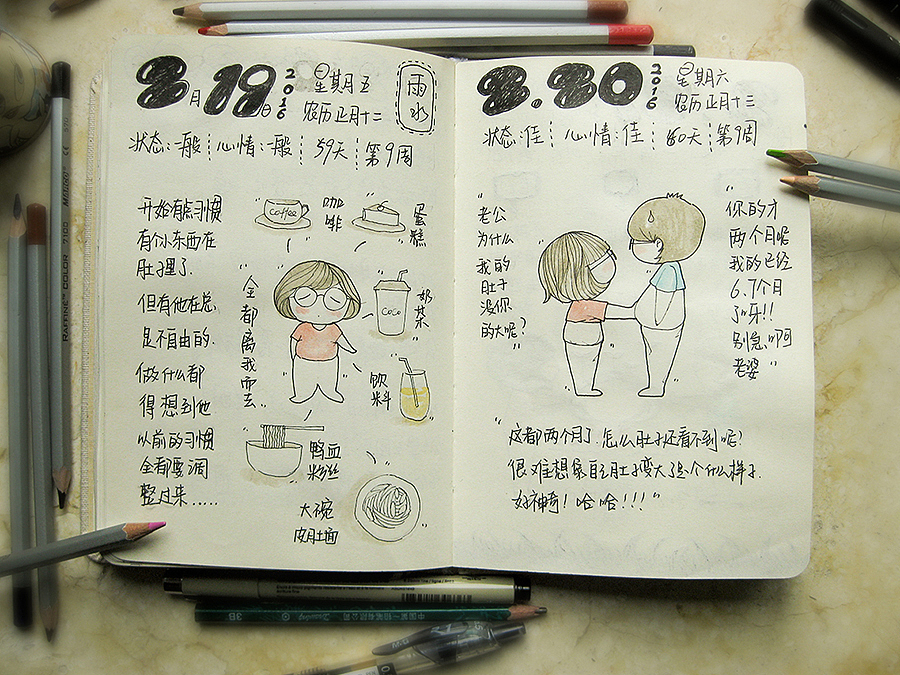 2月19日
2016
星期五
农历正月十二
雨水
状态:一般 心情:一般 59天 第9周
开始有点习惯
有个小东西在
肚子里了.
但有他在总
是不自由的.
做什么都
得想到他
以前的习惯
全都要调
整过来.....
"全都离我而去"
coffee
咖啡
蛋糕
COCO
奶茶
饮料
鸭血粉丝
大碗
皮肚面
2.20
2016
星期六
农历正月十三
状态:佳 心情:佳 60天 第9周
"老公
为什么
我的
肚子
没你
的大呢?"
"你的才
两个月呢
我的已经
6.7个月
了呀!!
别急啊
老婆"
"这都两个月了.怎么肚子还看不到呢?
很难想象自己肚子变大了是个什么样子.
好神奇!哈哈!!!"
RAFFINÉ COLOR 7100 MARCO
3B
中国第一铅笔有限公司